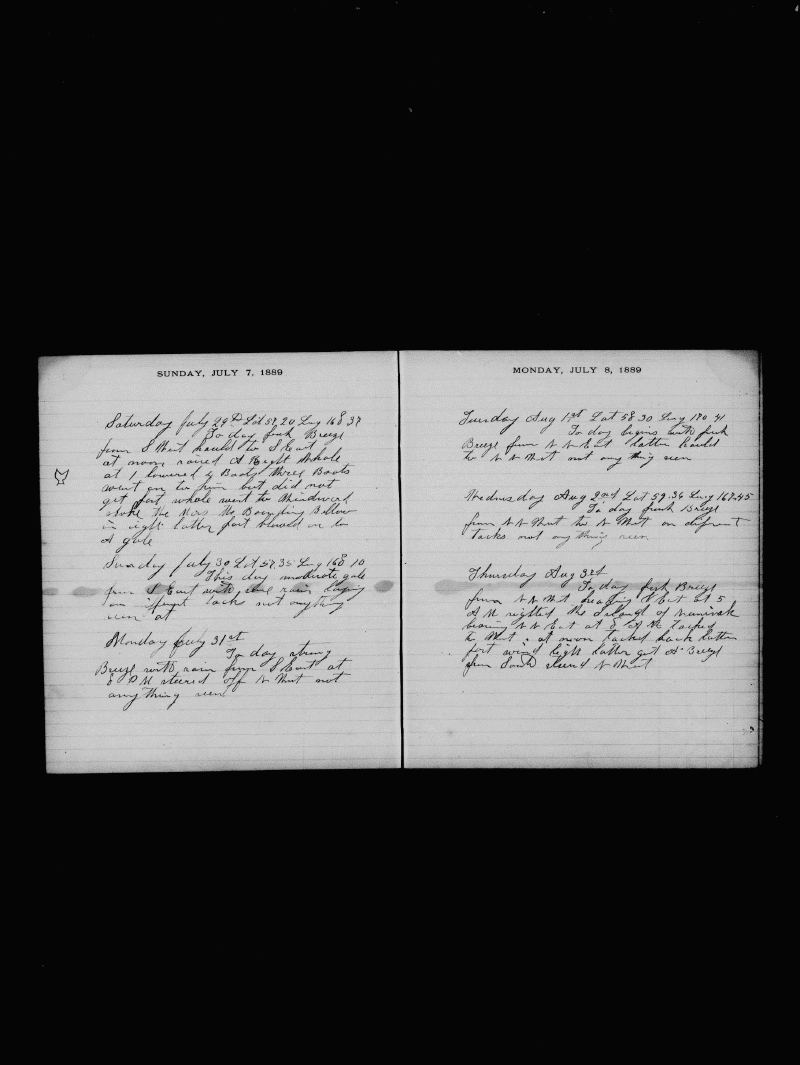 SUNDAY, JULY 7, 1889
Saturday July 29th Lat 59.20 Long 168 37
To day fresh Breeze
from S West hauld to S East
at noon raised A Right Whale
at 1 lowered 4 Boats three Boats
went on to him but did not
get fast whale went to Windward
spoke the Mors the Bounding Billow
in sight latter part blowed on to
A gale
Sunday July 30 Lat 59.35 Long 168 10
This day moderate gale
from S East with some rain laying
on tacks not anything
seen at
Monday July 31st
To day strong
Breeze with rain from S East at
PM steered off N West not
anything seen
MONDAY, JULY 8, 1889
Tuesday Aug 1st Lat 58.30 Long 170 41
To day begins with fresh
Breeze from N N East latter hauld
to N N West not any thing seen
Wednesday Aug 2nd Lat 59.36 Long 167.45
To day fresh Breeze
from N N West to N West on difrent
tacks not any thing seen
Thursday Aug 3rd
To day fresh Breeze
from N N West S East at 5
A M sighted the Island of Nunivak
bearing N N East at 8 A M tacked
to West: at noon tacked back latter
part wind light latter got A Breeze
from South steerd N West